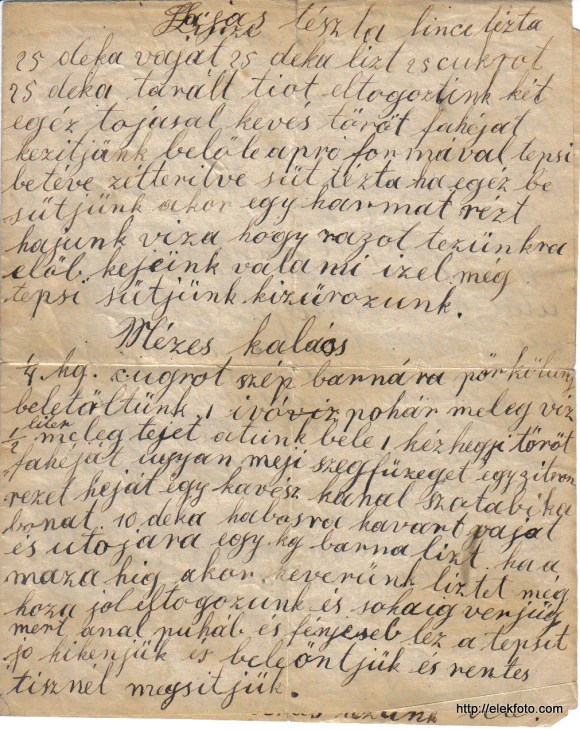 tészta lincetézta
25 deka vaját 25 deka lizt 25 cukrot
25 deka tarált tiot eltogoztink két
egéz tojasal kevés töröt fahéjat
kezitjünk belőle apro formával tepsi
betéve zitteritve süt tézta ha egéz be
sütjünk akor egy harmat rézt
hajunk viza hogy razot tezünkra
előb kejeink vala mi izel még
tepsi sütjünk kizürozunk.
Mézes kalács
1/4 kg. cugrot szép barnára pörkölünk
beletöltünk 1 ivóviz pohár meleg viz
1/2 liter meleg tejet atünk bele 1 kézhegji töröt
fahéjat ugyan meji szegfüzeget egy zitrom
rezel heját egy kavész kanal szatabika
bonat. 10 deka habosra kavart vajal
és utojara egy kg barna lizt. ha a
maza hig akor keverünk liztet még
hoza jol eltogozunk és sokaig verjük
mert anal puháb és fénjeseb lez a tepsit
jo kikenjük es beleöntjük és rentes
tisznél megsitjük.
vele.
http://elekfoto.com/